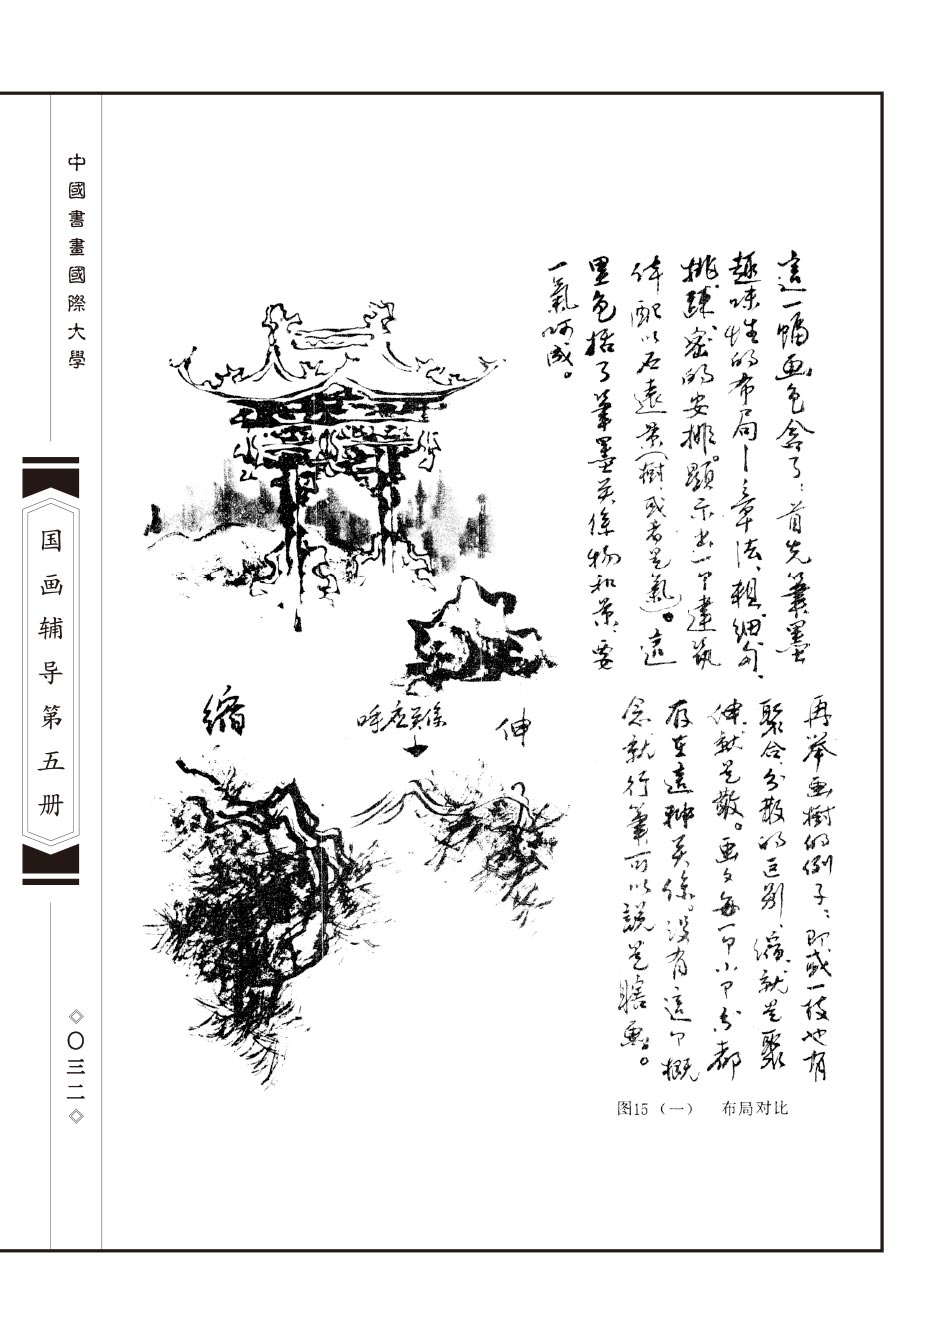 這一幅画包含了：首先筆墨
趣味性的布局—章法、粗、细、勾、
挑、疎、密的安排。顕示出一个建筑
体配以石遠景（樹或者是氣）。這
里包括了筆墨关係物和景、要
一氣呵成。
再举画樹的例子：即或一枝也有
聚合分散的区别、縮就是聚
伸就是散。画文每一个小个分都
存在這种关係。没有這个概
念就行筆可以説是瞎画。
縮
呼应关係
伸
图15（一） 布局对比
中國書畫國際大學
国画辅导第五册
〇三二